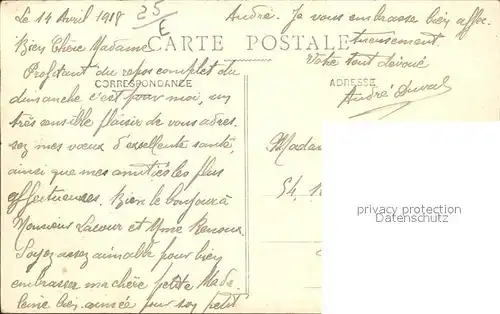 Le 14 Avril 1918
25
E
CARTE POSTALE
CORRESPONDANCE
ADRESSE
Bien Chère Madame
Profitant du repos complet du
dimanche c'est pour moi, un
très sensible plaisir de vous adres
sez mes vœux d'excellente santé,
ainsi que mes amitiés les plus
affectueuses. Bien le bonjour à
Monsieur Lacour et Mme Renoux.
Soyez assez aimable pour bien
embrasser ma chère petite Made
leine bien aimée pour son petit
André. Je vous embrasse bien affec
tueusement.
Votre tout dévoué
André Duval
Madam
54,
privacy protection
Datenschutz